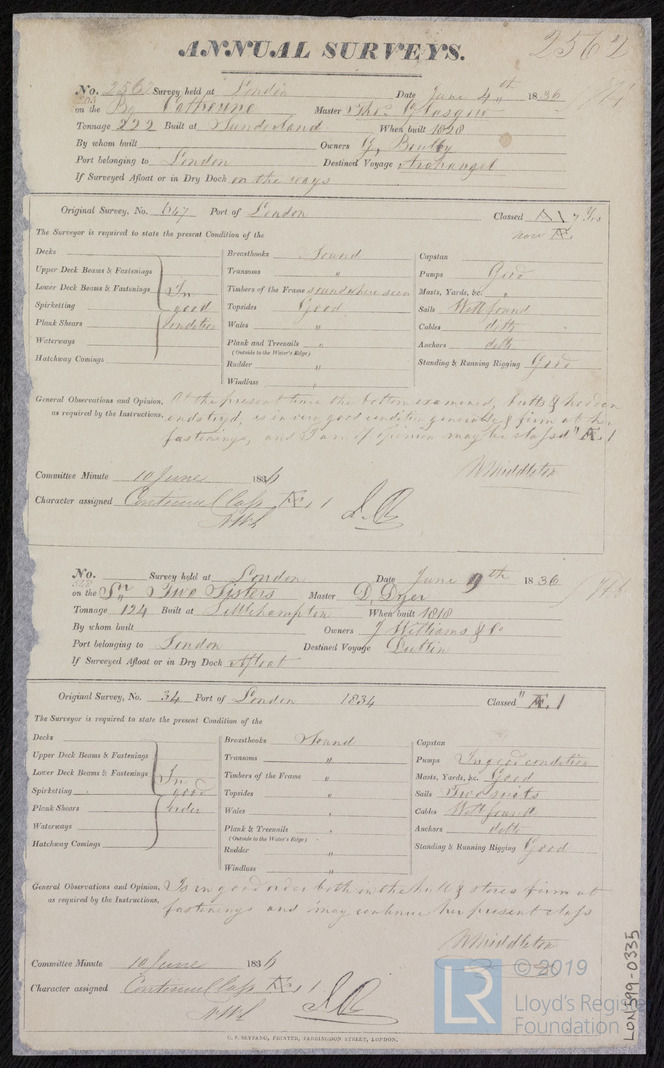 2562
ANNUAL SURVEYS.
No. 2562 Survey held at London Date June 4th 1836
on the Bg Catherine Master Thos. Glasgow
Tonnage 222 Built at Sunderland When built 1828
By whom built Owners G,
Port belonging to London Destined Voyage Archangel
If Surveyed Afloat or in Dry Dock on the ways
Original Survey, No. 647 Port of London Classed A1 7 Yrs
now Æ
The Surveyor is required to state the present Condition of the
Decks
Upper Deck Beams & Fastenings
Lower Deck Beams & Fastenings
Spirketting
Plank Shears
Waterways
Hatchway Comings
In
good
Condition
Breasthooks Sound
Transoms "
Timbers of the Frame sound where seen
Topsides Good
Wales "
Plank and Treenails "
(Outside to the Water's Edge)
Rudder "
Windlass "
Capstan
Pumps Good
Masts, Yards, &c. "
Sails Well found
Cables ditto
Anchors ditto
Standing & Running Rigging Good
General Observations and Opinion, At the present time the bottom examined, butts & hooden
as required by the Instructions. ends tryd, is in very good condition generally & firm at her
fastenings, and I am of opinion may be classed "Æ 1
W Middleton
Committee Minute 10 June 1836
Character assigned Continued Class Æ 1
No. Survey held at London Date June 9th 1836
on the Sr Two Sisters Master D. Dyer
Tonnage 124 Built at Littlehampton When built 1818
By whom built Owners J Williams & Co
Port belonging to London Destined Voyage Dublin
If Surveyed Afloat or in Dry Dock Afloat
Original Survey, No. 34 Port of London 1834 Classed "Æ 1
The Surveyor is required to state the present Condition of the
Decks
Upper Deck Beams & Fastenings
Lower Deck Beams & Fastenings
Spirketting
Plank Shears
Waterways
Hatchway Comings
In
good
order
Breasthooks Sound
Transoms "
Timbers of the Frame "
Topsides "
Wales "
Plank & Treenails "
(Outside to the Water's Edge)
Rudder "
Windlass "
Capstan
Pumps In good condition
Masts, Yards, &c. Good
Sails Two suits
Cables Well found
Anchors ditto
Standing & Running Rigging Good
General Observations and Opinion, Is in good order both in the hull & stores firm at
as required by the Instructions. fastenings and may continue her present class
W Middleton
Committee Minute 10 June 1836
Character assigned Continued Class Æ 1
C. F. SEYFANG, PRINTER, FARRINGDON STREET, LONDON.
LR © 2019
Lloyd's Register
Foundation
LON599-0335